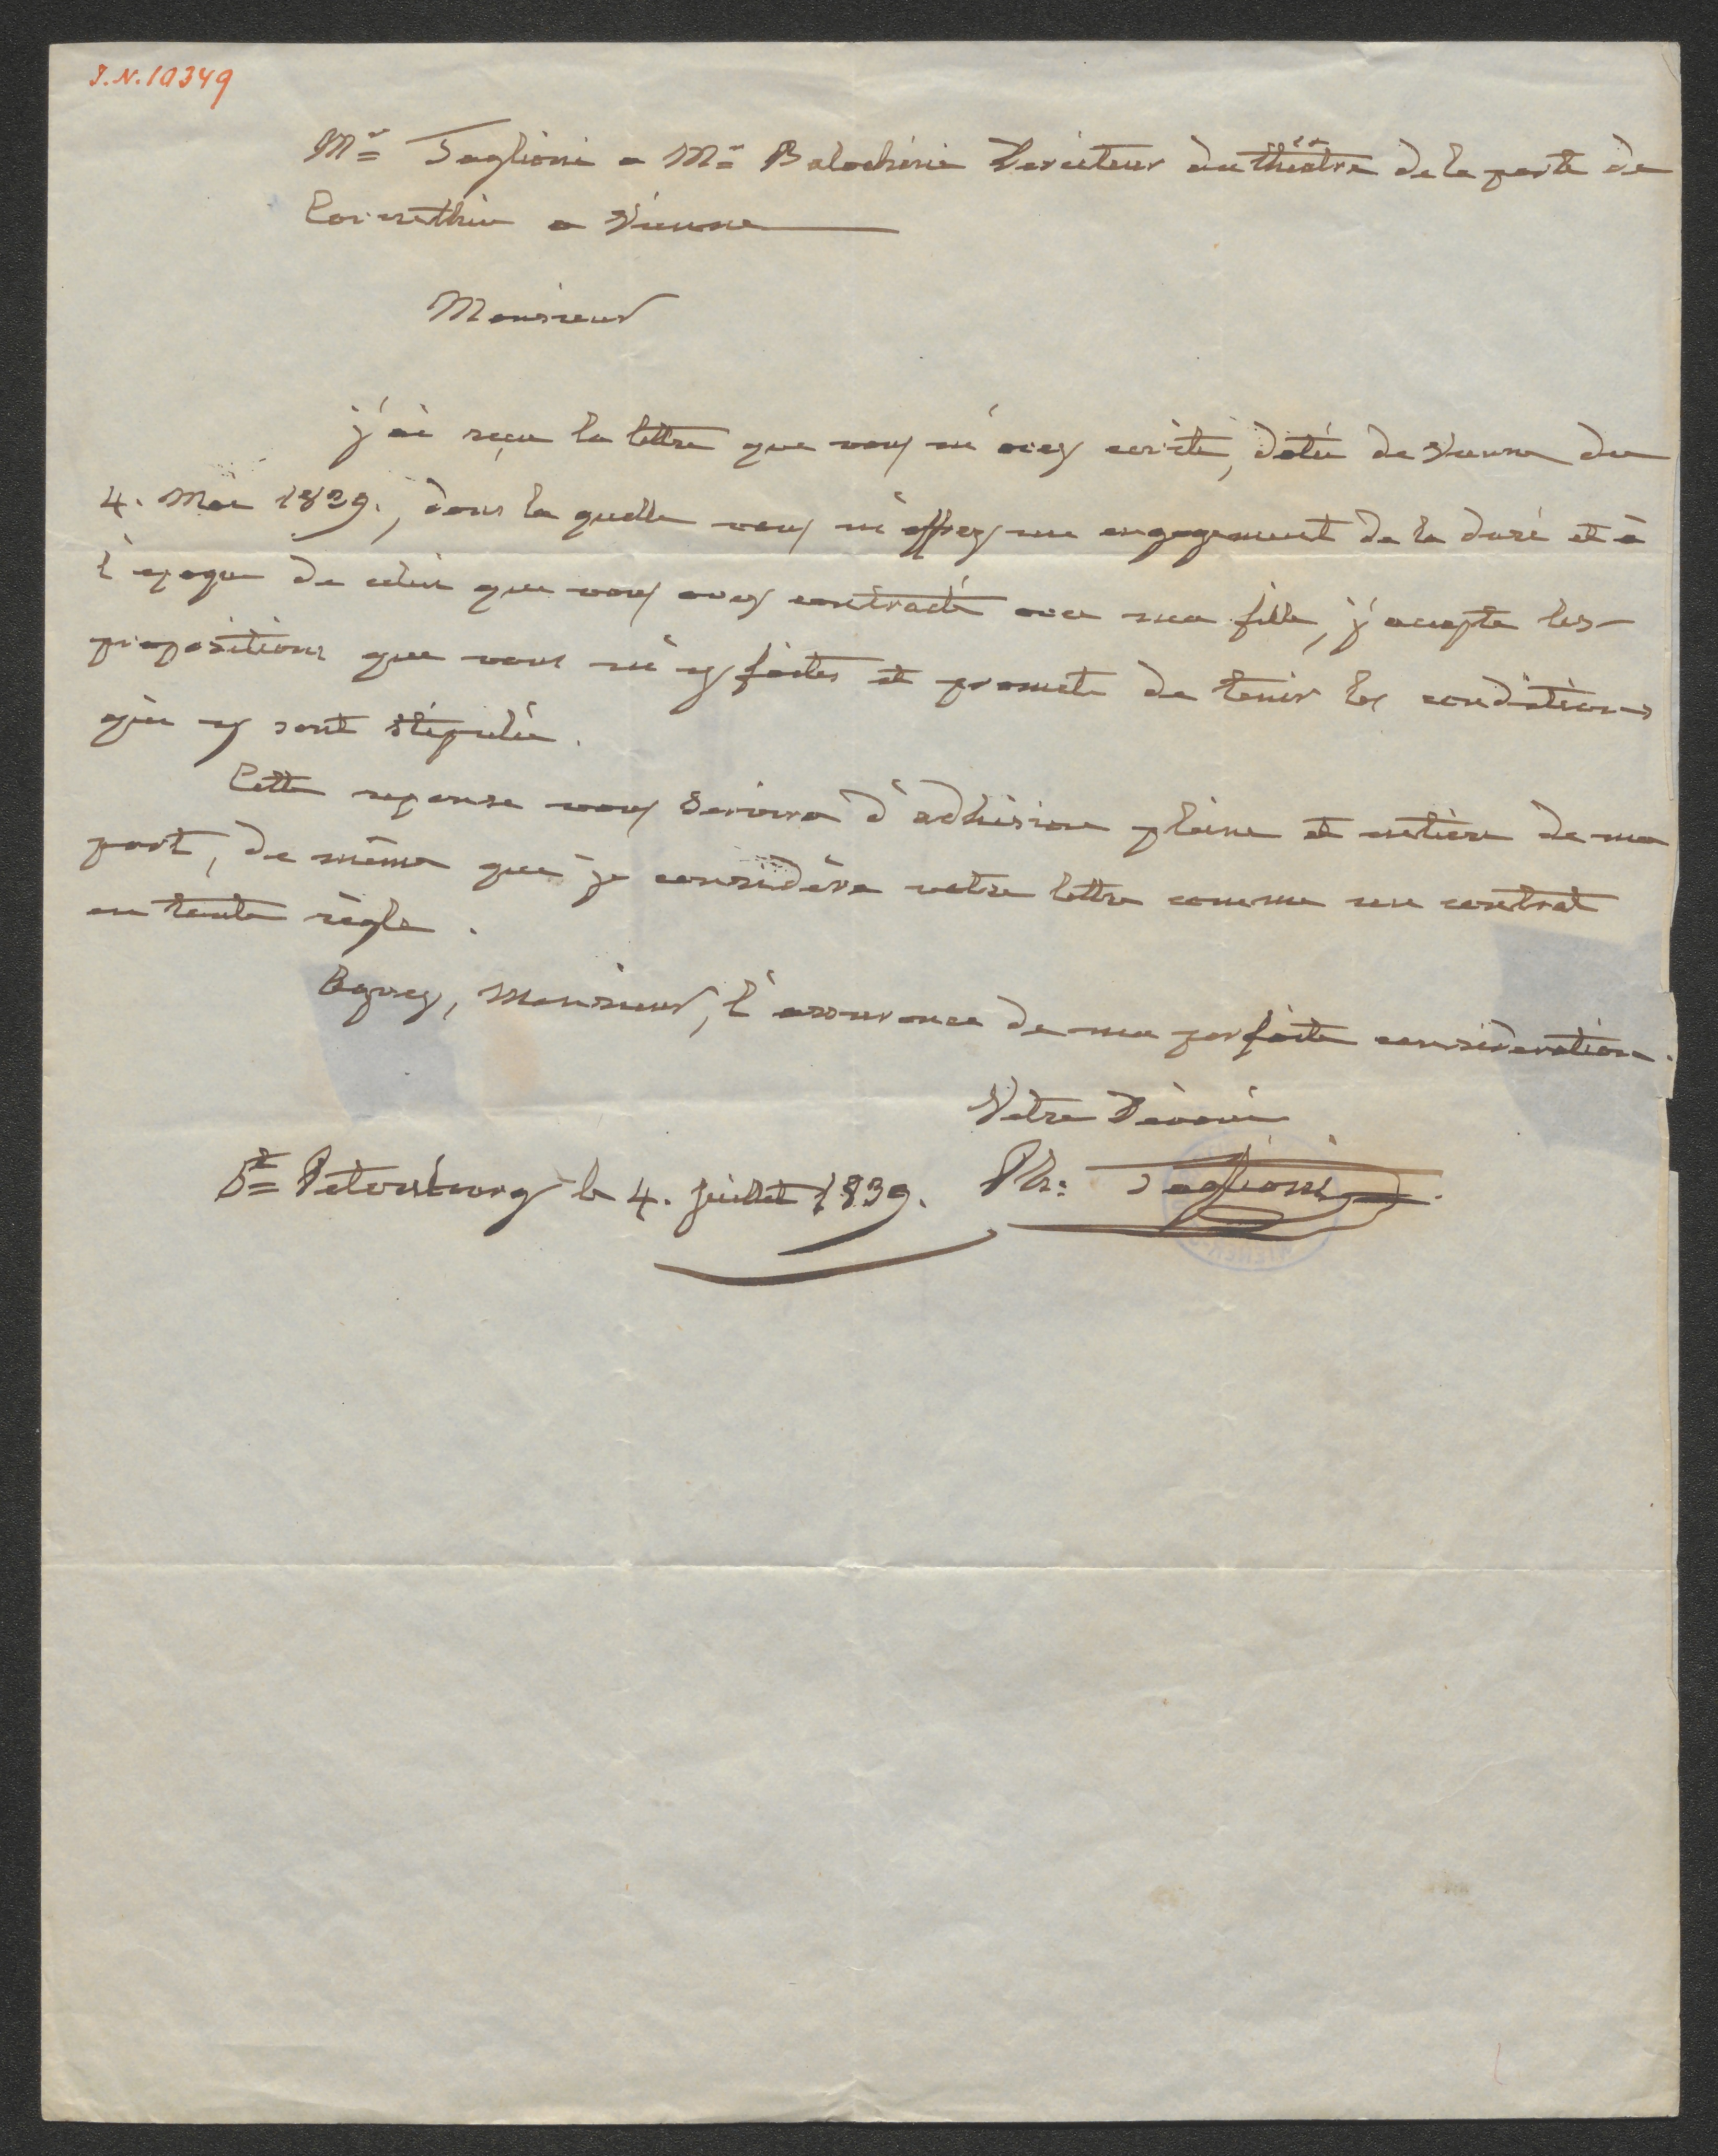 I.N. 10349
Mr Taglioni a Mr Balochinie Directeur du théâtre de la porte de
Corinthie a Vienne
Monsieur
j'ai reçu la lettre que vous m'avez ecrite, daté de Vienne du
4. Mai 1839., dans la quelle vous m'offrez un engagement de la duré et à
l'epoque de celui que vous avez contracté avec ma fille, j'accepte les
propositions que vous m'y faites et promets de tenir les conditions
qui y sont stipulée.
Cette reponse vous servira d'adhésion pleine et entière de ma
part, de même que je considère votre lettre comme un contrat
en toute règle.
Agreez, Monsieur, l'assurance de ma parfaite consideration.
Votre Dévoué
St Petersbourg le 4. juillet 1839. Ph: Taglioni